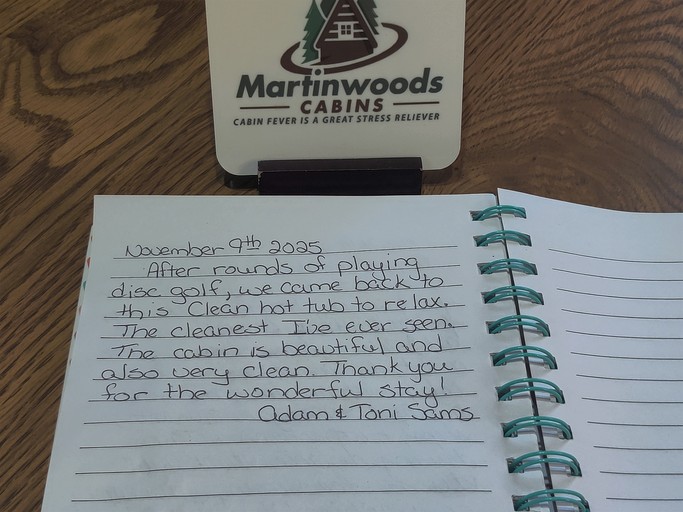 Martinwoods
CABINS
CABIN FEVER IS A GREAT STRESS RELIEVER
November 9th 2025
After rounds of playing
disc golf, we came back to
this Clean hot tub to relax.
The cleanest I've ever seen.
The cabin is beautiful and
also very clean. Thank you
for the wonderful stay!
Adam & Toni Sams